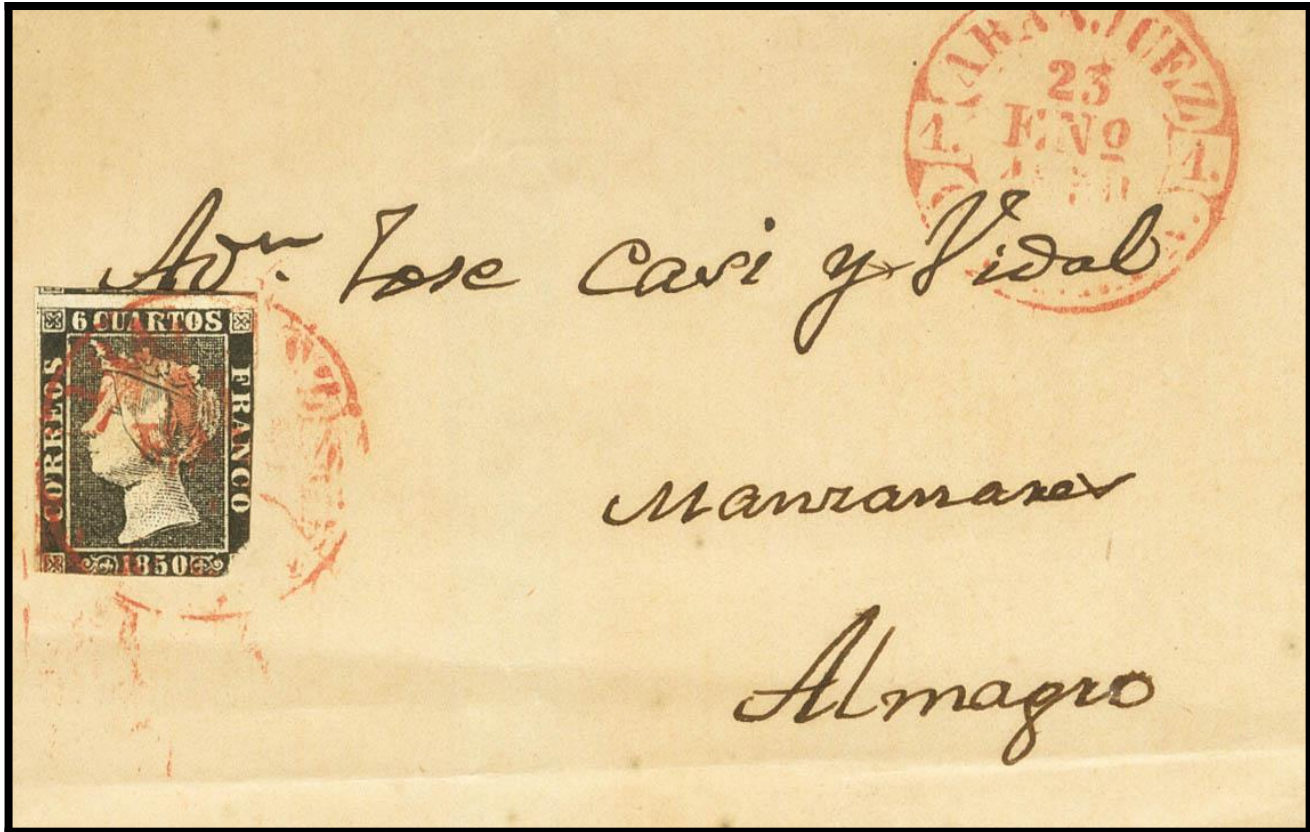 ARANJUEZ
23
ENº
1. 1.
A Dn. Jose Casi y Vidal
6 CUARTOS
CORREOS FRANCO
1850
Manzanares
Almagro